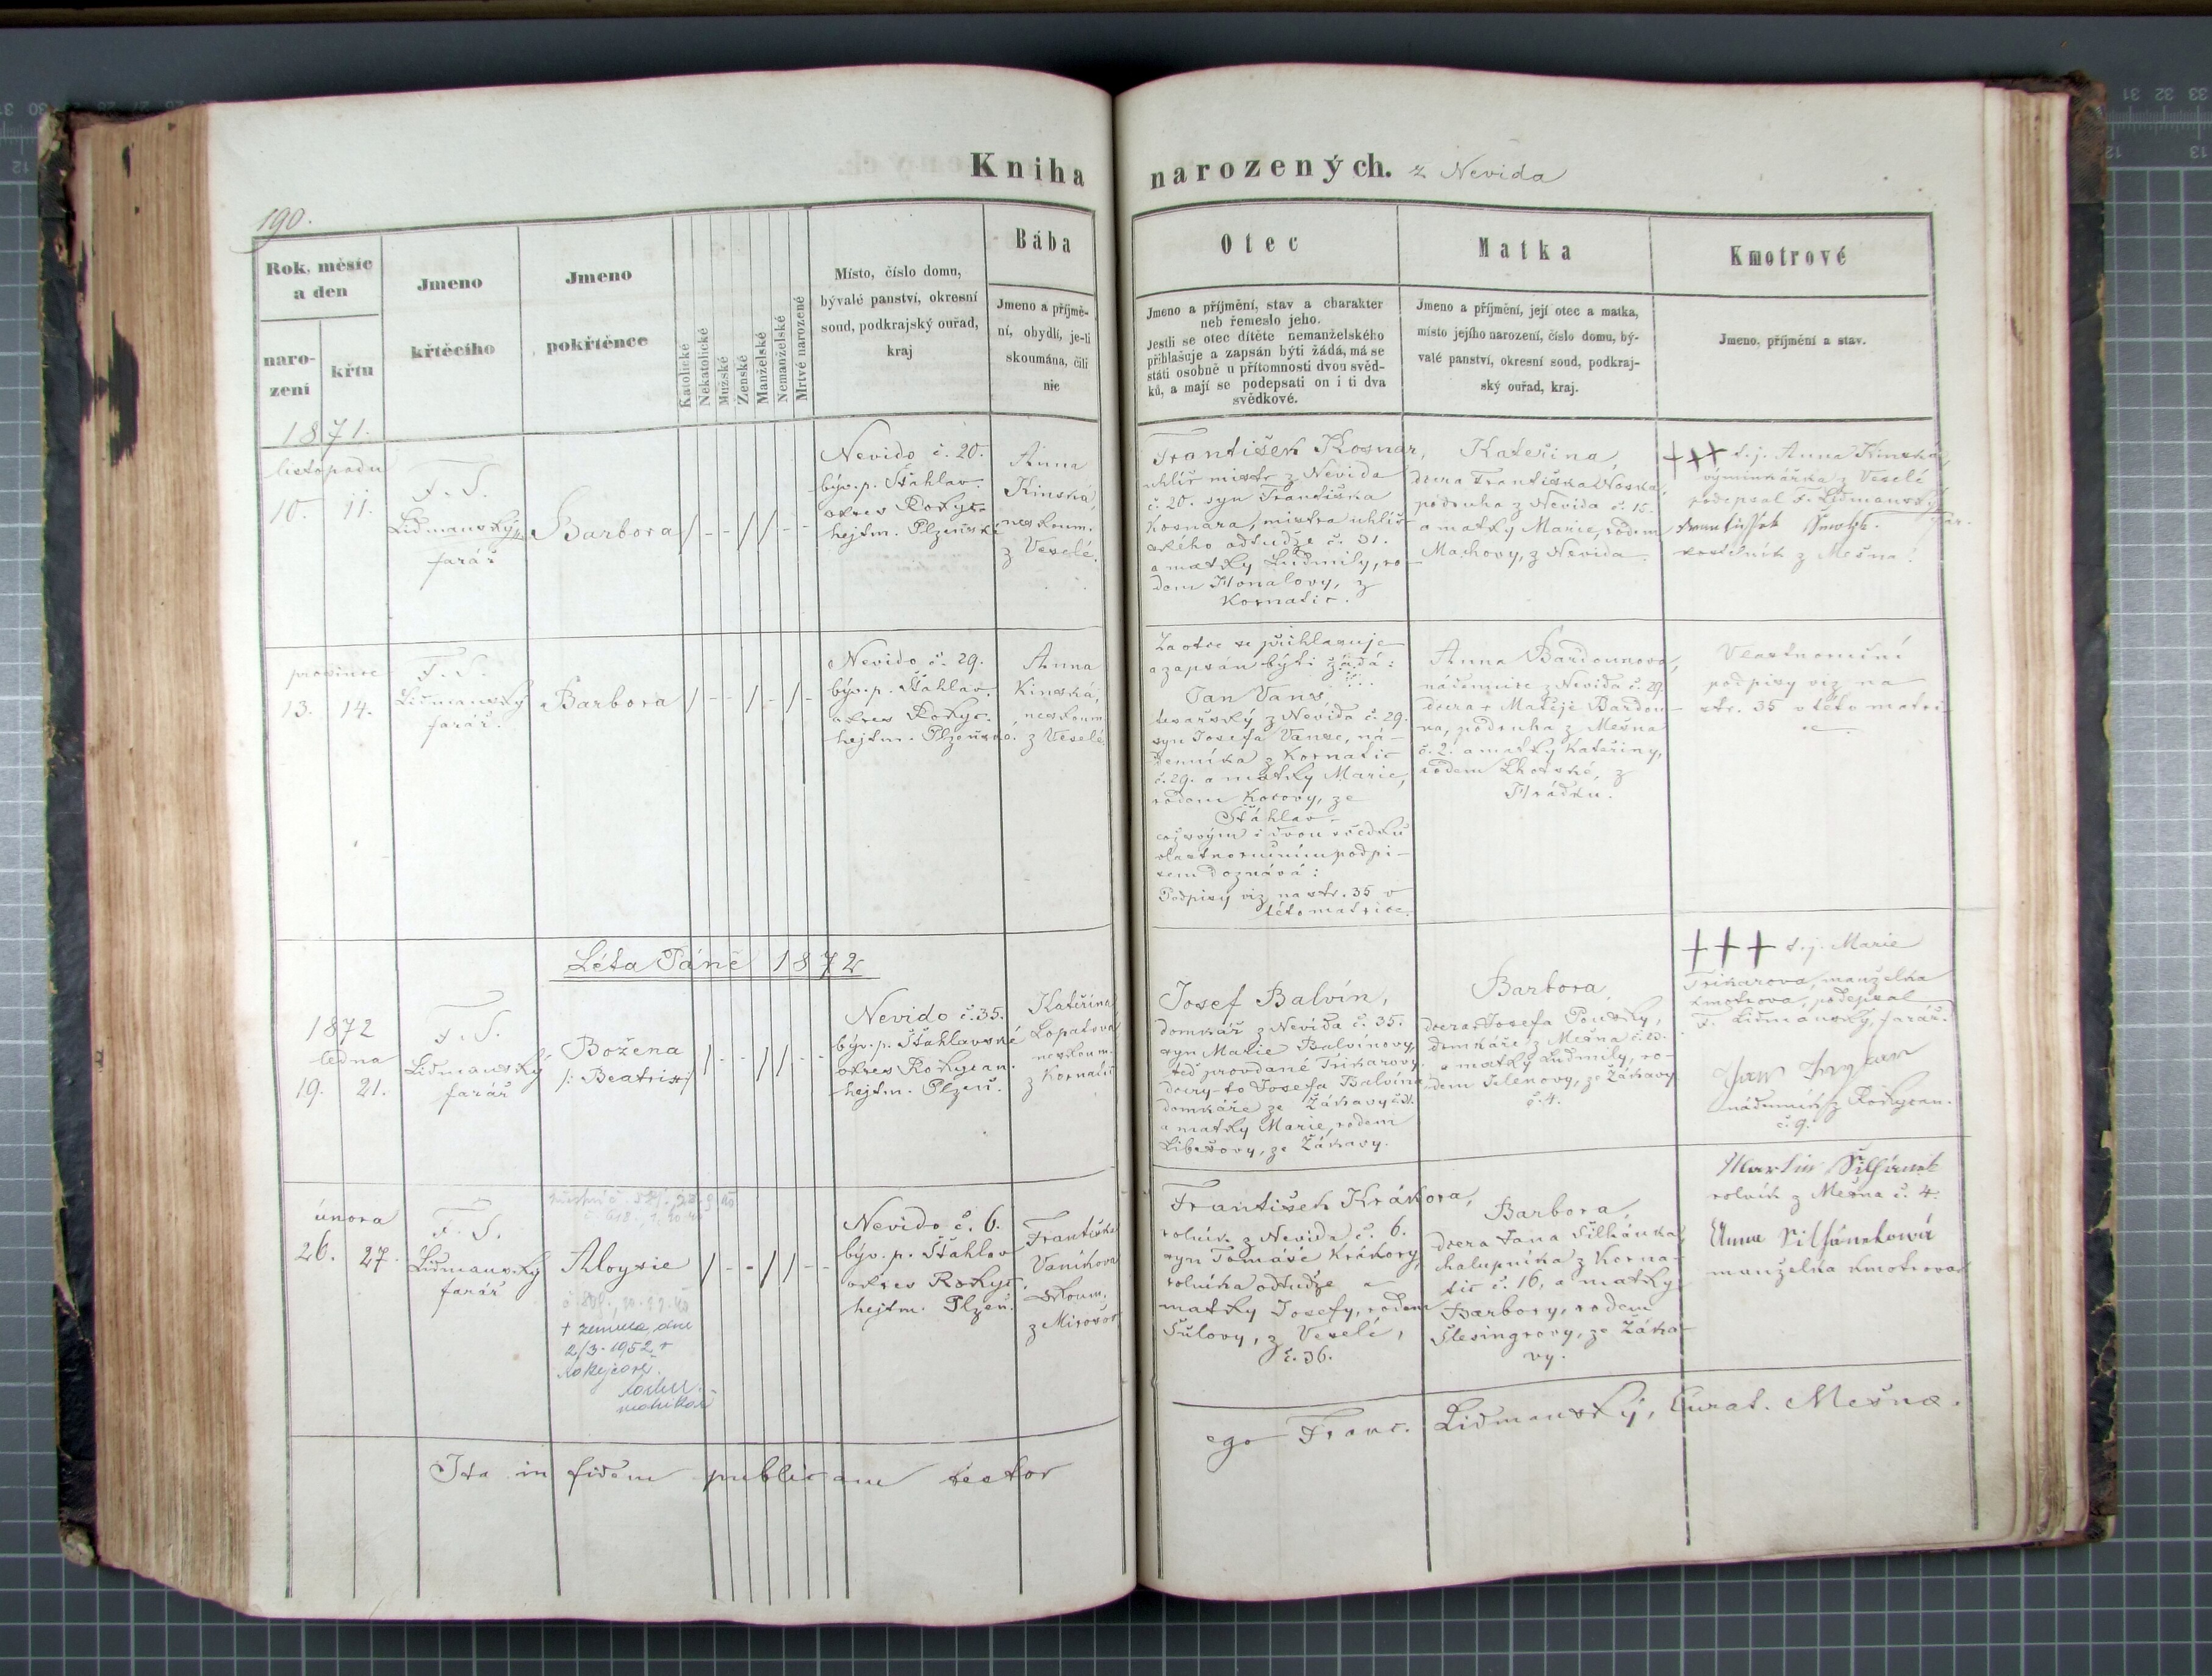 Kniha narozených. z Nevida
190.
Rok, měsíc
a den
naro-
zení
křtu
Jmeno
křtěcího
Jmeno
pokřtěnce
Katolické
Nekatolické
Mužské
Ženské
Manželské
Nemanželské
Mrtvé narozené
Místo, číslo domu,
bývalé panství, okresní
soud, podkrajský ouřad,
kraj
Bába
Jmeno a příjmě-
ní, obydlí, je-li
skoumána, čili
nic
Otec
Jmeno a příjmění, stav a charakter
neb řemeslo jeho.
Jestli se otec dítěte nemanželského
přihlašuje a zapsán býti žádá, má se
státi osobně u přítomnosti dvou svěd-
ků, a mají se podepsati on i ti dva
svědkové.
Matka
Jmeno a příjmění, její otec a matka,
místo jejího narození, číslo domu, bý-
valé panství, okresní soud, podkraj-
ský ouřad, kraj.
Kmotrové
Jmeno, příjmění a stav.
1871.
listopadu
10. 11.
F. S.
Lidmanský
farář
Barbora
Nevido č. 20.
býv. p. Štáhlav.
okres Rokyc.
hejtm. Plzeňské
Anna
Kinská,
neskoum.
z Veselé.
František Kosnar,
uhlíř mistr z Nevida
č. 20. syn Františka
Kosnara, mistra uhlíř-
ského odtudže č. 31.
a matky Ludmily, ro-
dem Honalovy, z
Kornatic.
Kateřina,
dcera Františka Noska,
podruha z Nevida č. 15.
a matky Marie, rodem
Machovy, z Nevida.
+++ t. j. Anna Kinská,
výminkářka z Veselé
podepsal F. Lidmanský
far.
kostelník z Mešna.
prosince
13. 14.
F. S.
Lidmanský
farář.
Barbora
Nevido č. 29.
býv. p. Štáhlav.
okres Rokyc.
hejtm. Plzeňské.
Anna
Kinská,
neskoum.
z Veselé.
Za otce se přihlašuje
a zapsán býti žádá:
Jan Vans,
tesařský z Nevida č. 29.
syn Josefa Vanse, ná-
denníka z Kornatic
č. 29. a matky Marie,
rodem Kotovy, ze
Štáhlav
což svým i dvou svědků
vlastnoručním podpi-
sem doznává:
Podpisy viz na str. 35 v
této matrice.
Anna Bardounova,
nádennice z Nevida č. 29.
dcera + Matěje Bardou-
na, podruha z Mešna
č. 2. a matky Kateřiny,
rodem Lhotské, z
Hrádku.
Vlastnoruční
podpisy viz na
str. 35 v této matri-
ce.
Léta Páně 1872
1872
ledna
19. 21.
F. S.
Lidmanský
farář
Božena
/: Beatrix :/
Nevido č. 35.
býv. p. Štáhlavské
okres Rokycan.
hejtm. Plzeň.
Kateřina
Lopatova
neskoum.
z Kornatic
Josef Balvín,
domkář z Nevida č. 35.
syn Marie Balvínovy,
teď provdané Trikarovy
dcery to Josefa Balvína
domkáře ze Žákavy
a matky Marie, rodem
Libešovy, ze Žákavy.
Barbora,
dcera Josefa Pousky,
domkáře z Mešna č. 23.
a matky Ludmily, ro-
dem Jelenovy, ze Žákavy
č. 4.
+++ t. j. Marie
Trikarova, manželka
kmotrova, podepsal
F. Lidmanský, farář.
nádenník z Rokycan.
č. 9.
února
26. 27.
F. S.
Lidmanský
farář
Aloysie
+ zemřela dne
2/3. 1952 v
Nevido č. 6.
býv. p. Štáhlav
okres Rokyc.
hejtm. Plzeň.
Františka
Vaníkova
skoum.
z Mirošov
František Krákora,
rolník z Nevida č. 6.
syn Tomáše Krákory,
rolníka odtudže a
matky Josefy, rodem
Šulovy, z Veselé,
č. 36.
Barbora,
dcera Jana Silhánka,
chalupníka z Korna-
tic č. 16, a matky
Barbory, rodem
Šlesingrovy, ze Žáka-
vy.
Martin Silhánek
rolník z Mešna č. 4.
Anna Silhánková
manželka kmotrova
Ita in fidem publicam testor
ego Franc. Lidmanský, Curat. Mešnæ.